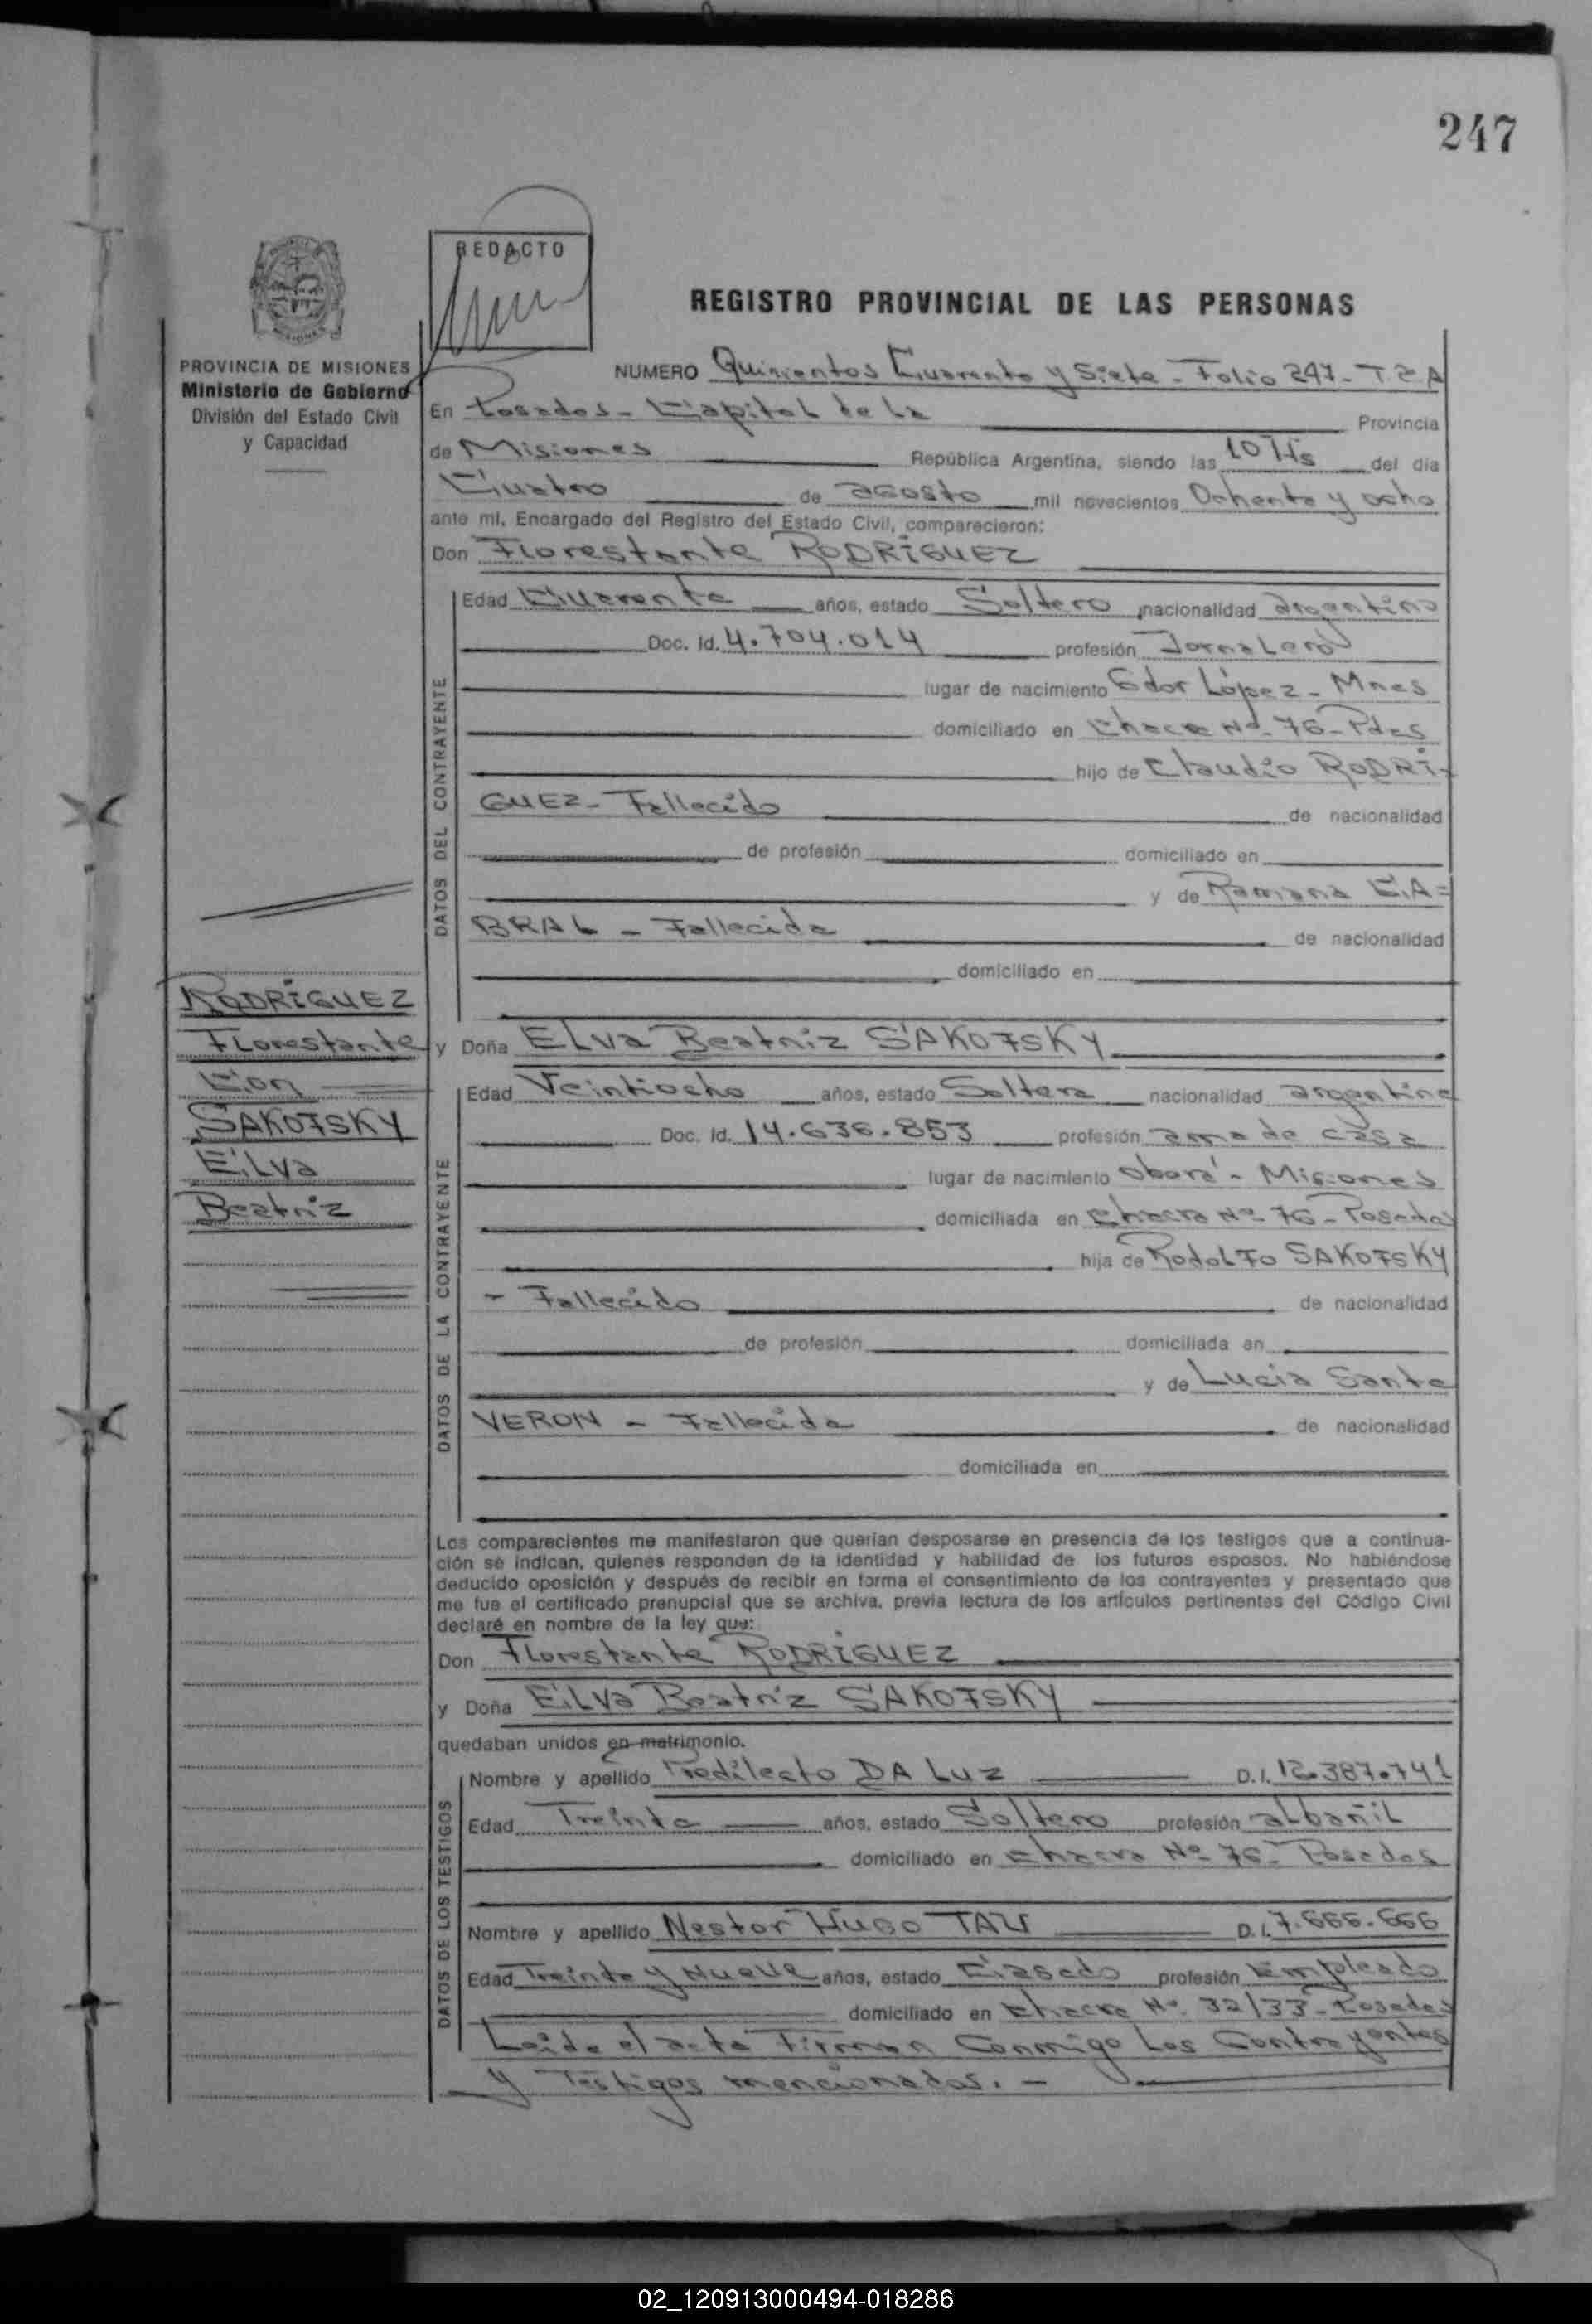 247
REDACTO
REGISTRO PROVINCIAL DE LAS PERSONAS
PROVINCIA DE MISIONES
Ministerio de Gobierno
División del Estado Civil
y Capacidad
NUMERO Quinientos Cuarenta y Siete - Folio 247 - T. 2 A
En Posadas - Capital de la Provincia
de Misiones República Argentina, siendo las 10 Hs del día
Cuatro de agosto mil novecientos Ochenta y ocho
ante mi, Encargado del Registro del Estado Civil, comparecieron:
Don Florestante RODRÍGUEZ
DATOS DEL CONTRAYENTE
Edad Cuarenta años, estado Soltero nacionalidad argentino
Doc. Id. 4.704.014 profesión Jornalero
lugar de nacimiento Gdor López - Mnes
domiciliado en Chacra Nº 76 - Pdas
hijo de Claudio RODRI-
GUEZ - Fallecido de nacionalidad
de profesión domiciliado en
y de Ramona CA=
BRAL - Fallecida de nacionalidad
domiciliado en
RODRÍGUEZ
Florestante
Con
SAKOFSKY
Elva
Beatriz
y Doña Elva Beatriz SAKOFSKY
DATOS DE LA CONTRAYENTE
Edad Veintiocho años, estado Soltera nacionalidad argentina
Doc. Id. 14.636.853 profesión ama de casa
lugar de nacimiento Oberá - Misiones
domiciliada en Chacra Nº 76 - Posadas
hija de Rodolfo SAKOFSKY
- Fallecido de nacionalidad
de profesión domiciliada en
y de Lucia Santa
VERON - Fallecida de nacionalidad
domiciliada en
Los comparecientes me manifestaron que querían desposarse en presencia de los testigos que a continua-
ción se indican, quienes responden de la identidad y habilidad de los futuros esposos. No habiéndose
deducido oposición y después de recibir en forma el consentimiento de los contrayentes y presentado que
me fue el certificado prenupcial que se archiva, previa lectura de los artículos pertinentes del Código Civil
declaré en nombre de la ley que:
Don Florestante RODRÍGUEZ
y Doña Elva Beatriz SAKOFSKY
quedaban unidos en matrimonio.
DATOS DE LOS TESTIGOS
Nombre y apellido Predilecto DA LUZ D.I. 12.387.741
Edad Treinta años, estado Soltero profesión albañil
domiciliado en Chacra Nº 76 - Posadas
Nombre y apellido Nestor Hugo TAU D.I. 7.666.666
Edad Treinta y Nueve años, estado Casado profesión Empleado
domiciliado en Chacra Nº 32/33 - Posadas
Leída el acta Firman Conmigo Los Contrayentes
y Testigos mencionados. -
02_120913000494-018286